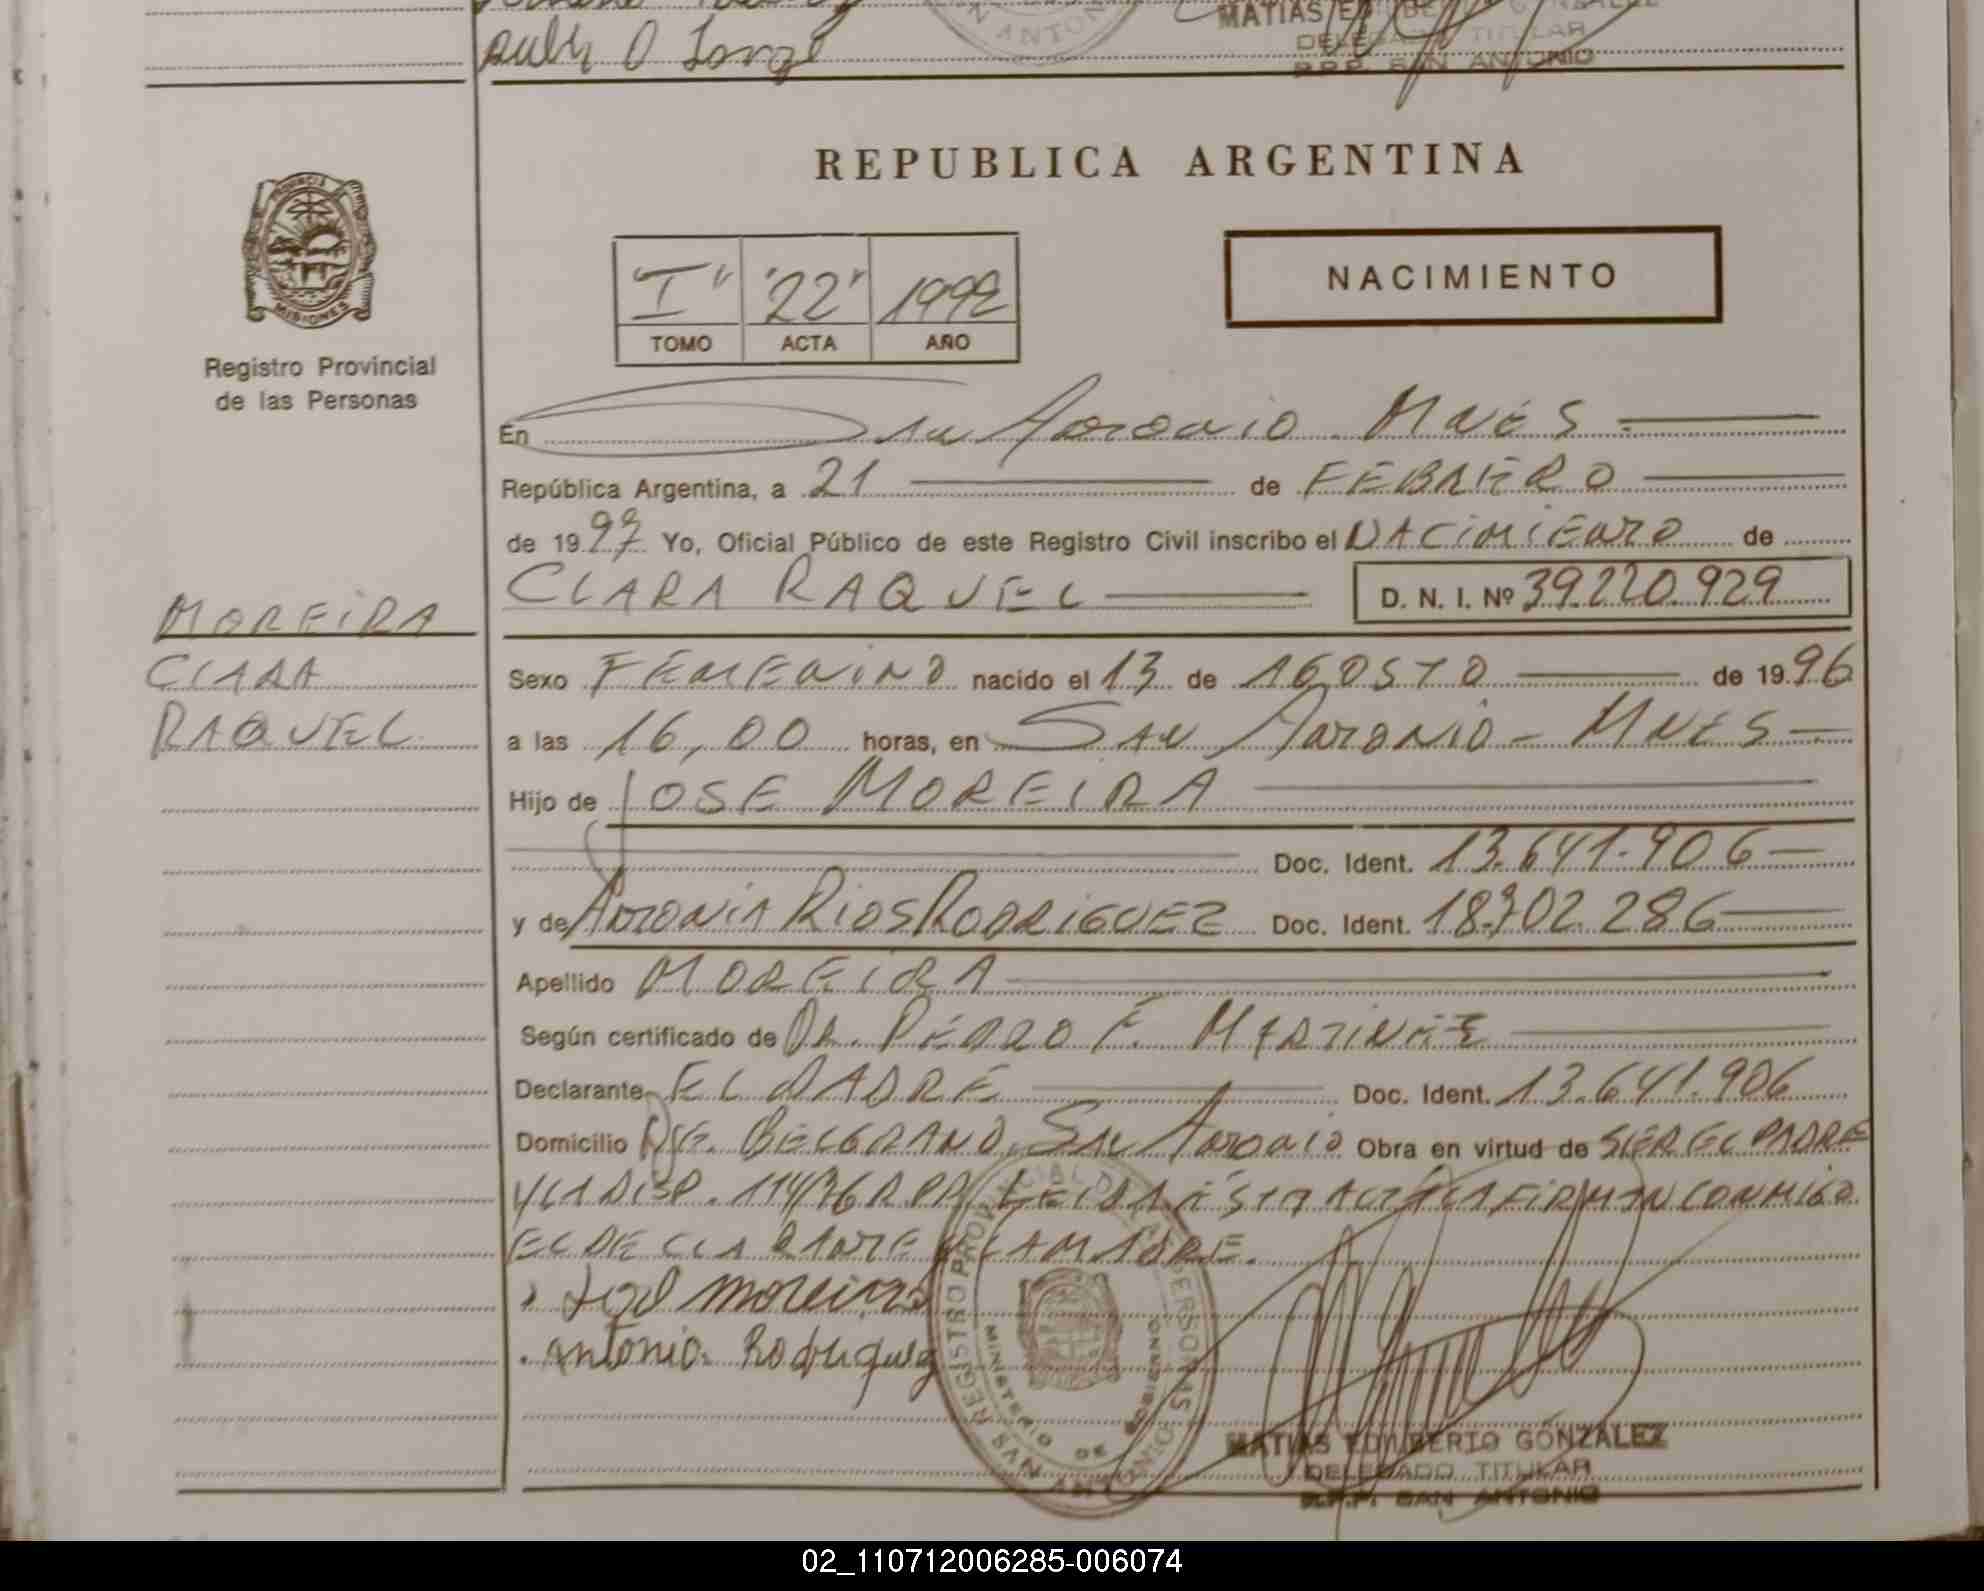 Ruth
MATIAS EDILBERTO GONZALEZ
DELEGADO TITULAR
R.P.P. SAN ANTONIO
SAN ANTONIO
REPUBLICA ARGENTINA
PROVINCIA
MISIONES
"I" "22" 1992
TOMO ACTA AÑO
NACIMIENTO
Registro Provincial
de las Personas
En San Antonio Mnes
República Argentina, a 21 de FEBRERO
de 1997 Yo, Oficial Público de este Registro Civil inscribo el NACIMIENTO de
CLARA RAQUEL D. N. I. Nº 39.220.929
MOREIRA
CLARA
RAQUEL
Sexo FEMENINO nacido el 13 de AGOSTO de 1996
a las 16,00 horas, en SAN ANTONIO - MNES -
Hijo de JOSE MOREIRA
Doc. Ident. 13.641.906
y de ANTONIA RIOS RODRIGUEZ Doc. Ident. 18.702.286
Apellido MOREIRA
Según certificado de DR. PEDRO F. MARTINEZ
Declarante EL PADRE Doc. Ident. 13.641.906
Domicilio BELGRANO, SAN ANTONIO Obra en virtud de SER EL PADRE
Y LA DISP. 114/76 R.P.P. LEIDA ESTA ACTA LA FIRMAN CONMIGO
EL DECLARANTE Y LA MADRE.
José moreira
antonia Rodriguez
REGISTRO PROVINCIAL DE LAS PERSONAS
MINISTERIO DE
SAN ANTONIO MISIONES
MATIAS EDILBERTO GONZALEZ
DELEGADO TITULAR
R.P.P. SAN ANTONIO
02_110712006285-006074